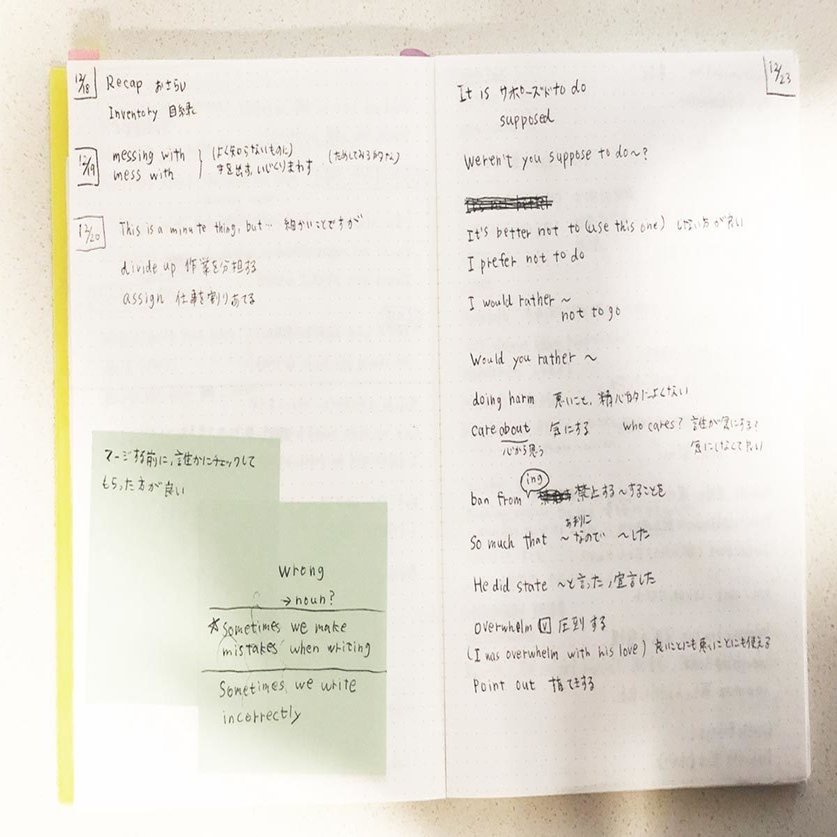 12/18 Recap おさらい
Inventory 目録
12/19 messing with (よく知らないものに) (ためしてみる的な)
mess with 手を出す, いじくりまわす
12/20 This is a minute thing, but… 細かいことですが
divide up 作業を分担する
assign 仕事を割りあてる
マージする前に, 誰かにチェックして
もらった方が良い
wrong
→ noun?
* Sometimes we make
mistakes when writing
Sometimes we write
incorrectly
12/23
It is サポーズド to do
supposed
Weren't you suppose to do~?
It's better not to (use this one) しない方が良い
I prefer not to do
I would rather ~
not to go
Would you rather ~
doing harm 悪いこと, 精心的によくない
care about 気にする who cares? 誰が気にする?
心から思う 気にしなくて良い
ing
ban from 禁止する ~することを
あまりに
So much that ~なので ~した
He did state ~と言った, 宣言した
overwhelm V 圧倒する
(I was overwhelm with his love) 良いことにも悪いことにも使える
Point out 指てきする